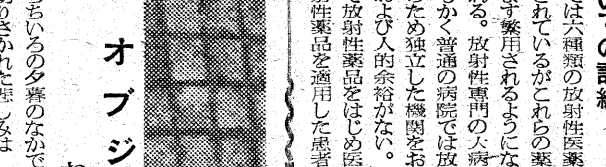 の
は六種類の放射性医薬
されているがこれらの薬
ます繁用されるようにな
る。放射性専門の大病
かく普通の病院では放
ため独立した機関をお
および人的余裕がない。
て放射性薬品をはじめ医
性薬品を適用した患者
オブジ
ちいろの夕暮のなかで